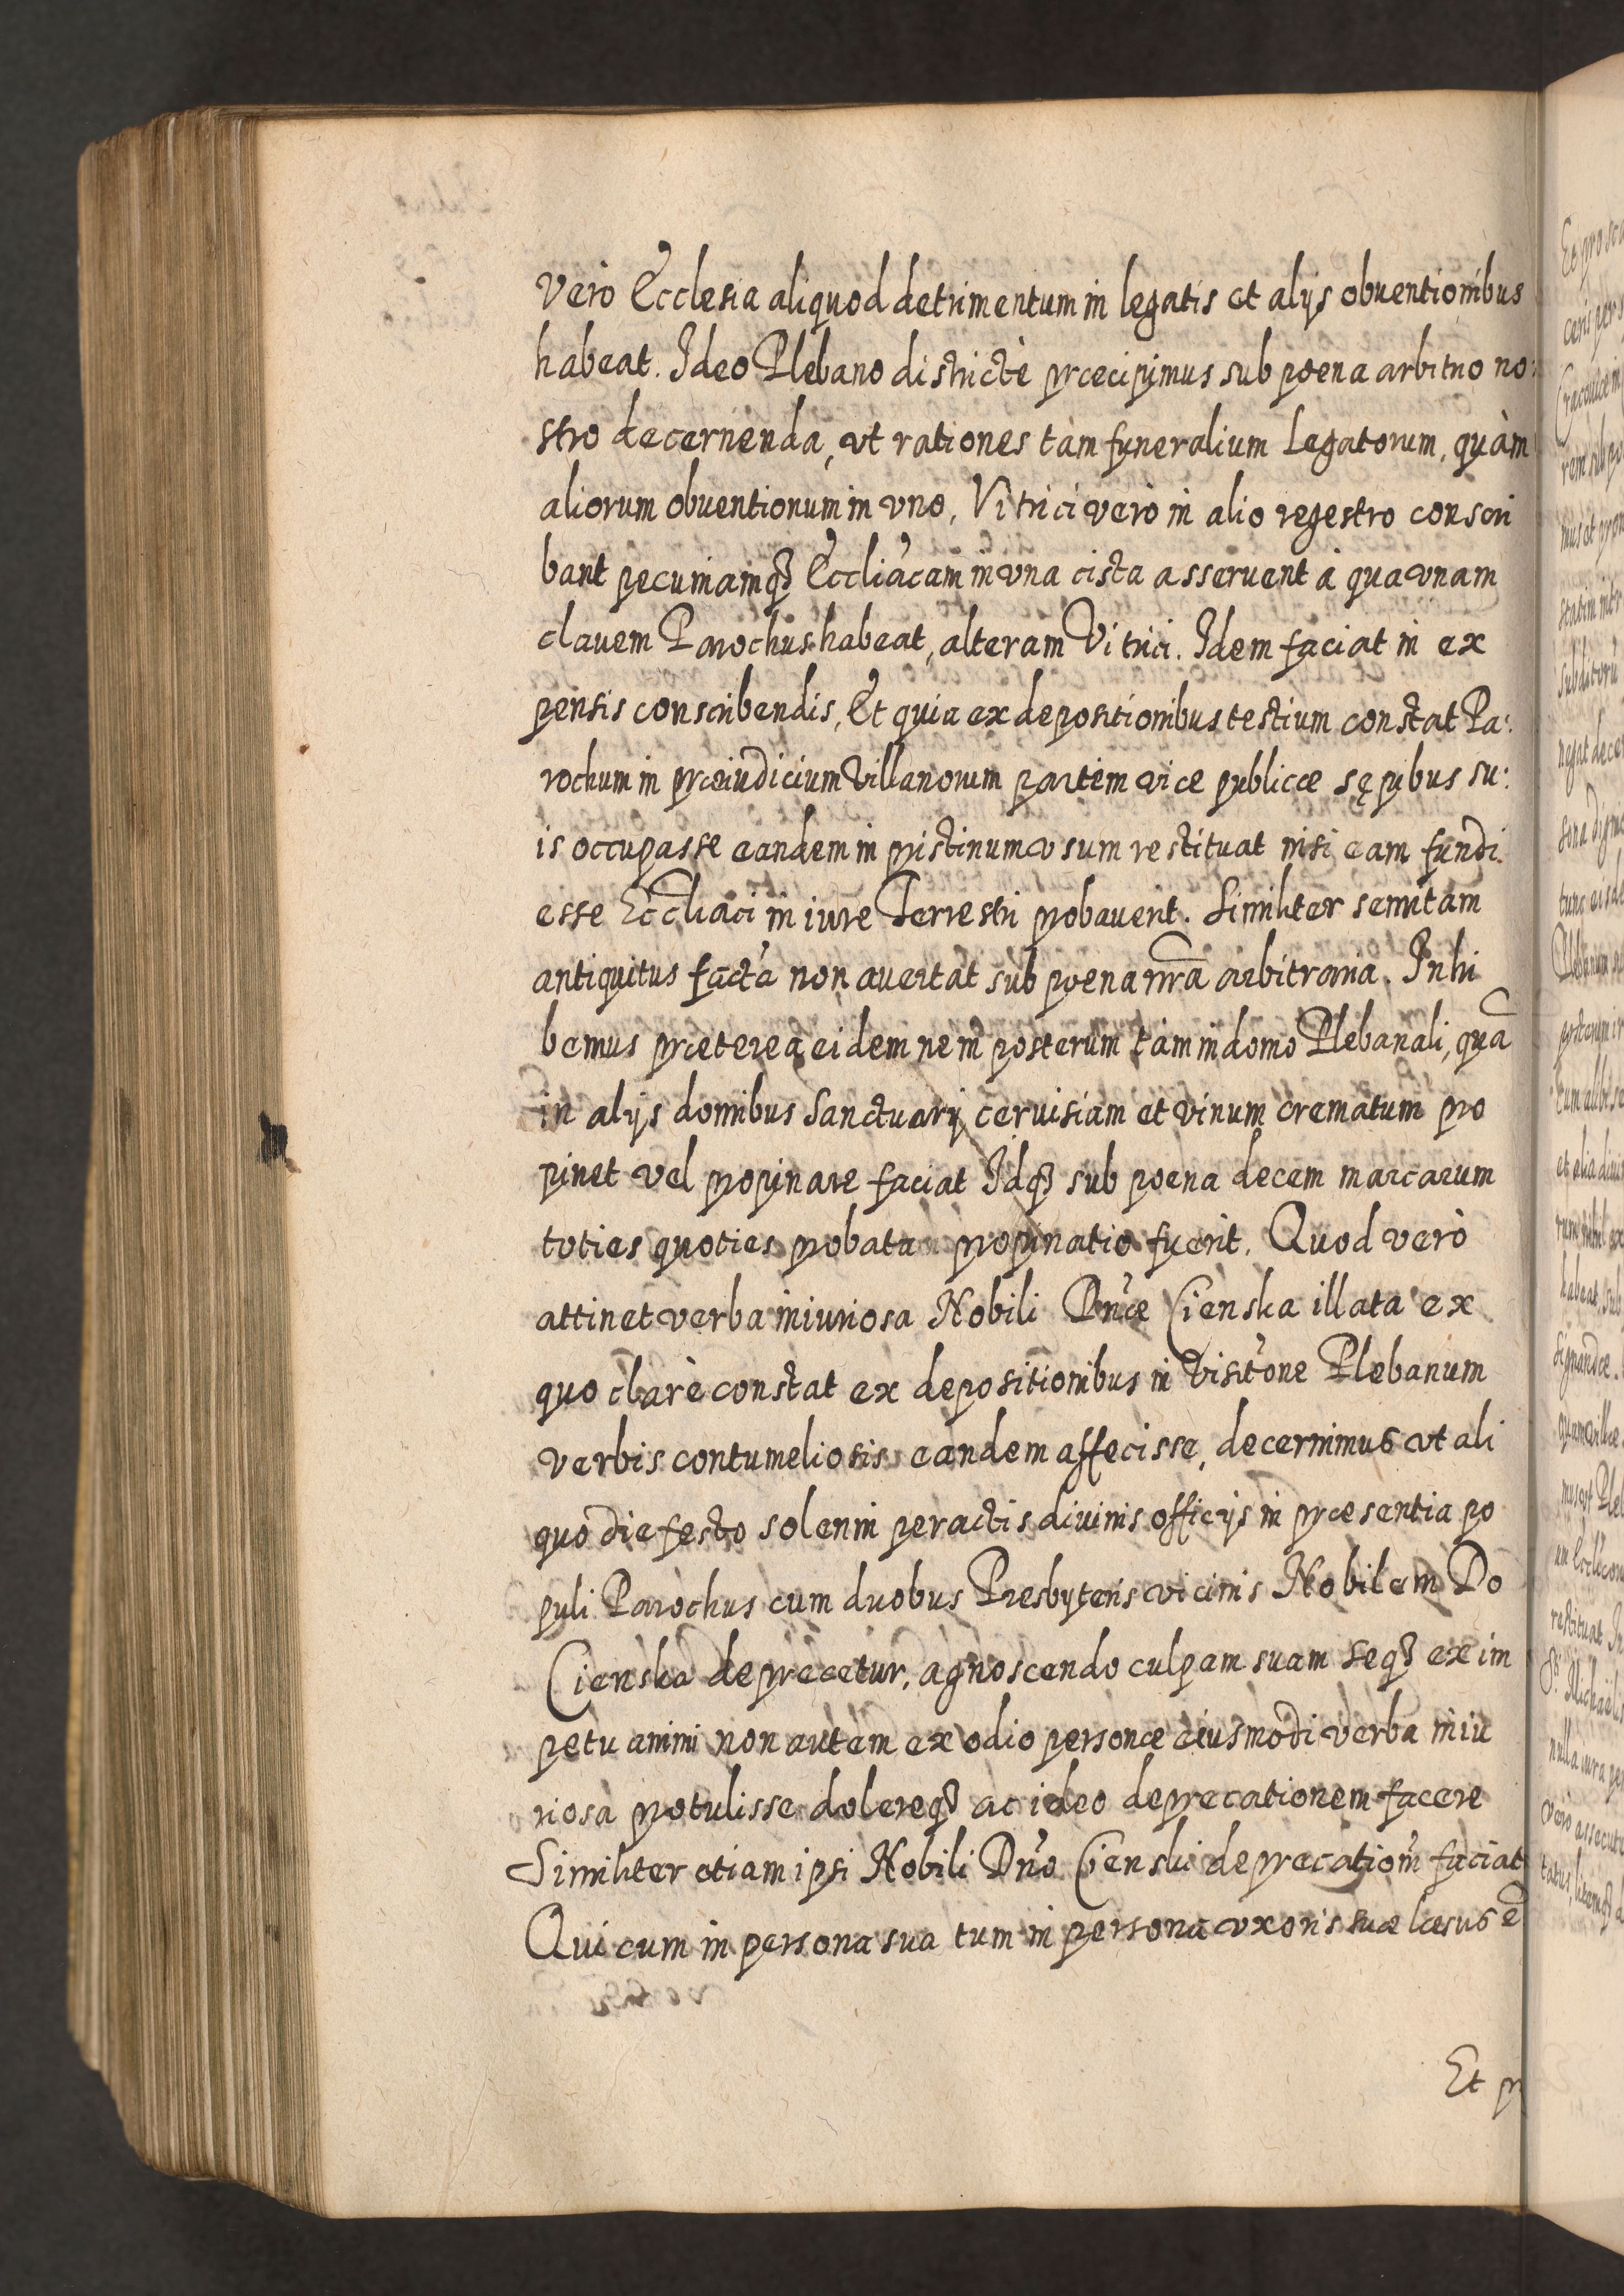 vero Ecclesia aliquod detrimentum in legatis et alijs obuentionibus
habeat. Ideo Plebano districtè præcipimus sub poena arbitrio no:
stro decernenda, vt rationes tàm funeralium Legatorum, quàm
aliorum obuentionum in vno, Vitrici verò in alio regestro conscri
bant pecuniamq₃ Eccliãcam in vna cista asseruent à qua vnam
clauem Parochus habeat, alteram Vitrici. Idem faciat in ex
pensis conscribendis, Et quia ex depositionibus testium constat Pa:
rochum in præiudicium Villanorum partem viæ publicæ sępibus su:
is occupasse eandem in pristinum vsum restituat nisi eam fundi
esse Eccliãci in iure Terrestri probauerit. Similiter semitam
antiquitus factã non auertat sub poena nrã arbitraria. Inhi
bemus præterea eidem ne in posterum tàm in domo Plebanali, quã
in alijs domibus Sanctuarij ceruisiam et vinum crematum pro
pinet vel propinare faciat Idq₃ sub poena decem marcarum
toties quoties probata propinatio fuerit. Quod verò
attinet verba iniuriosa Nobili Dnæ Cienska illata ex
quo clarè constat ex depositionibus in Visitõne Plebanum
verbis contumeliosis eandem affecisse, decernimus vt ali
quo die festo solenni peractis diuinis officijs in præsentia po
puli Parochus cum duobus Presbyteris vicinis Nobilem Do
Cienska deprecetur, agnoscendo culpam suam seq₃ ex im
petu animi non autem ex odio personæ eiusmodi verba iniu
riosa protulisse dolereq₃ ac ideo deprecationem facere
Similiter etiam ipsi Nobili Dno Cienski deprecationẽ faciat
Qui cum in persona sua tum in persona vxoris suæ læsus ẽ
Et pr